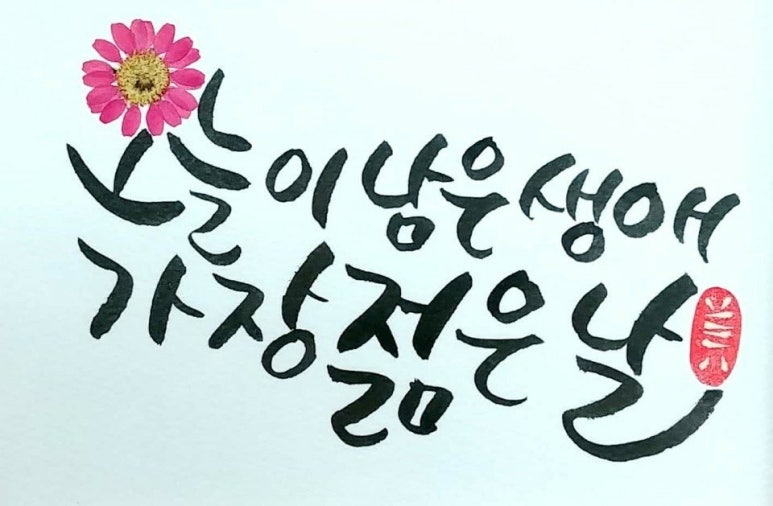 오늘이 남은 생애
가장 젊은 날